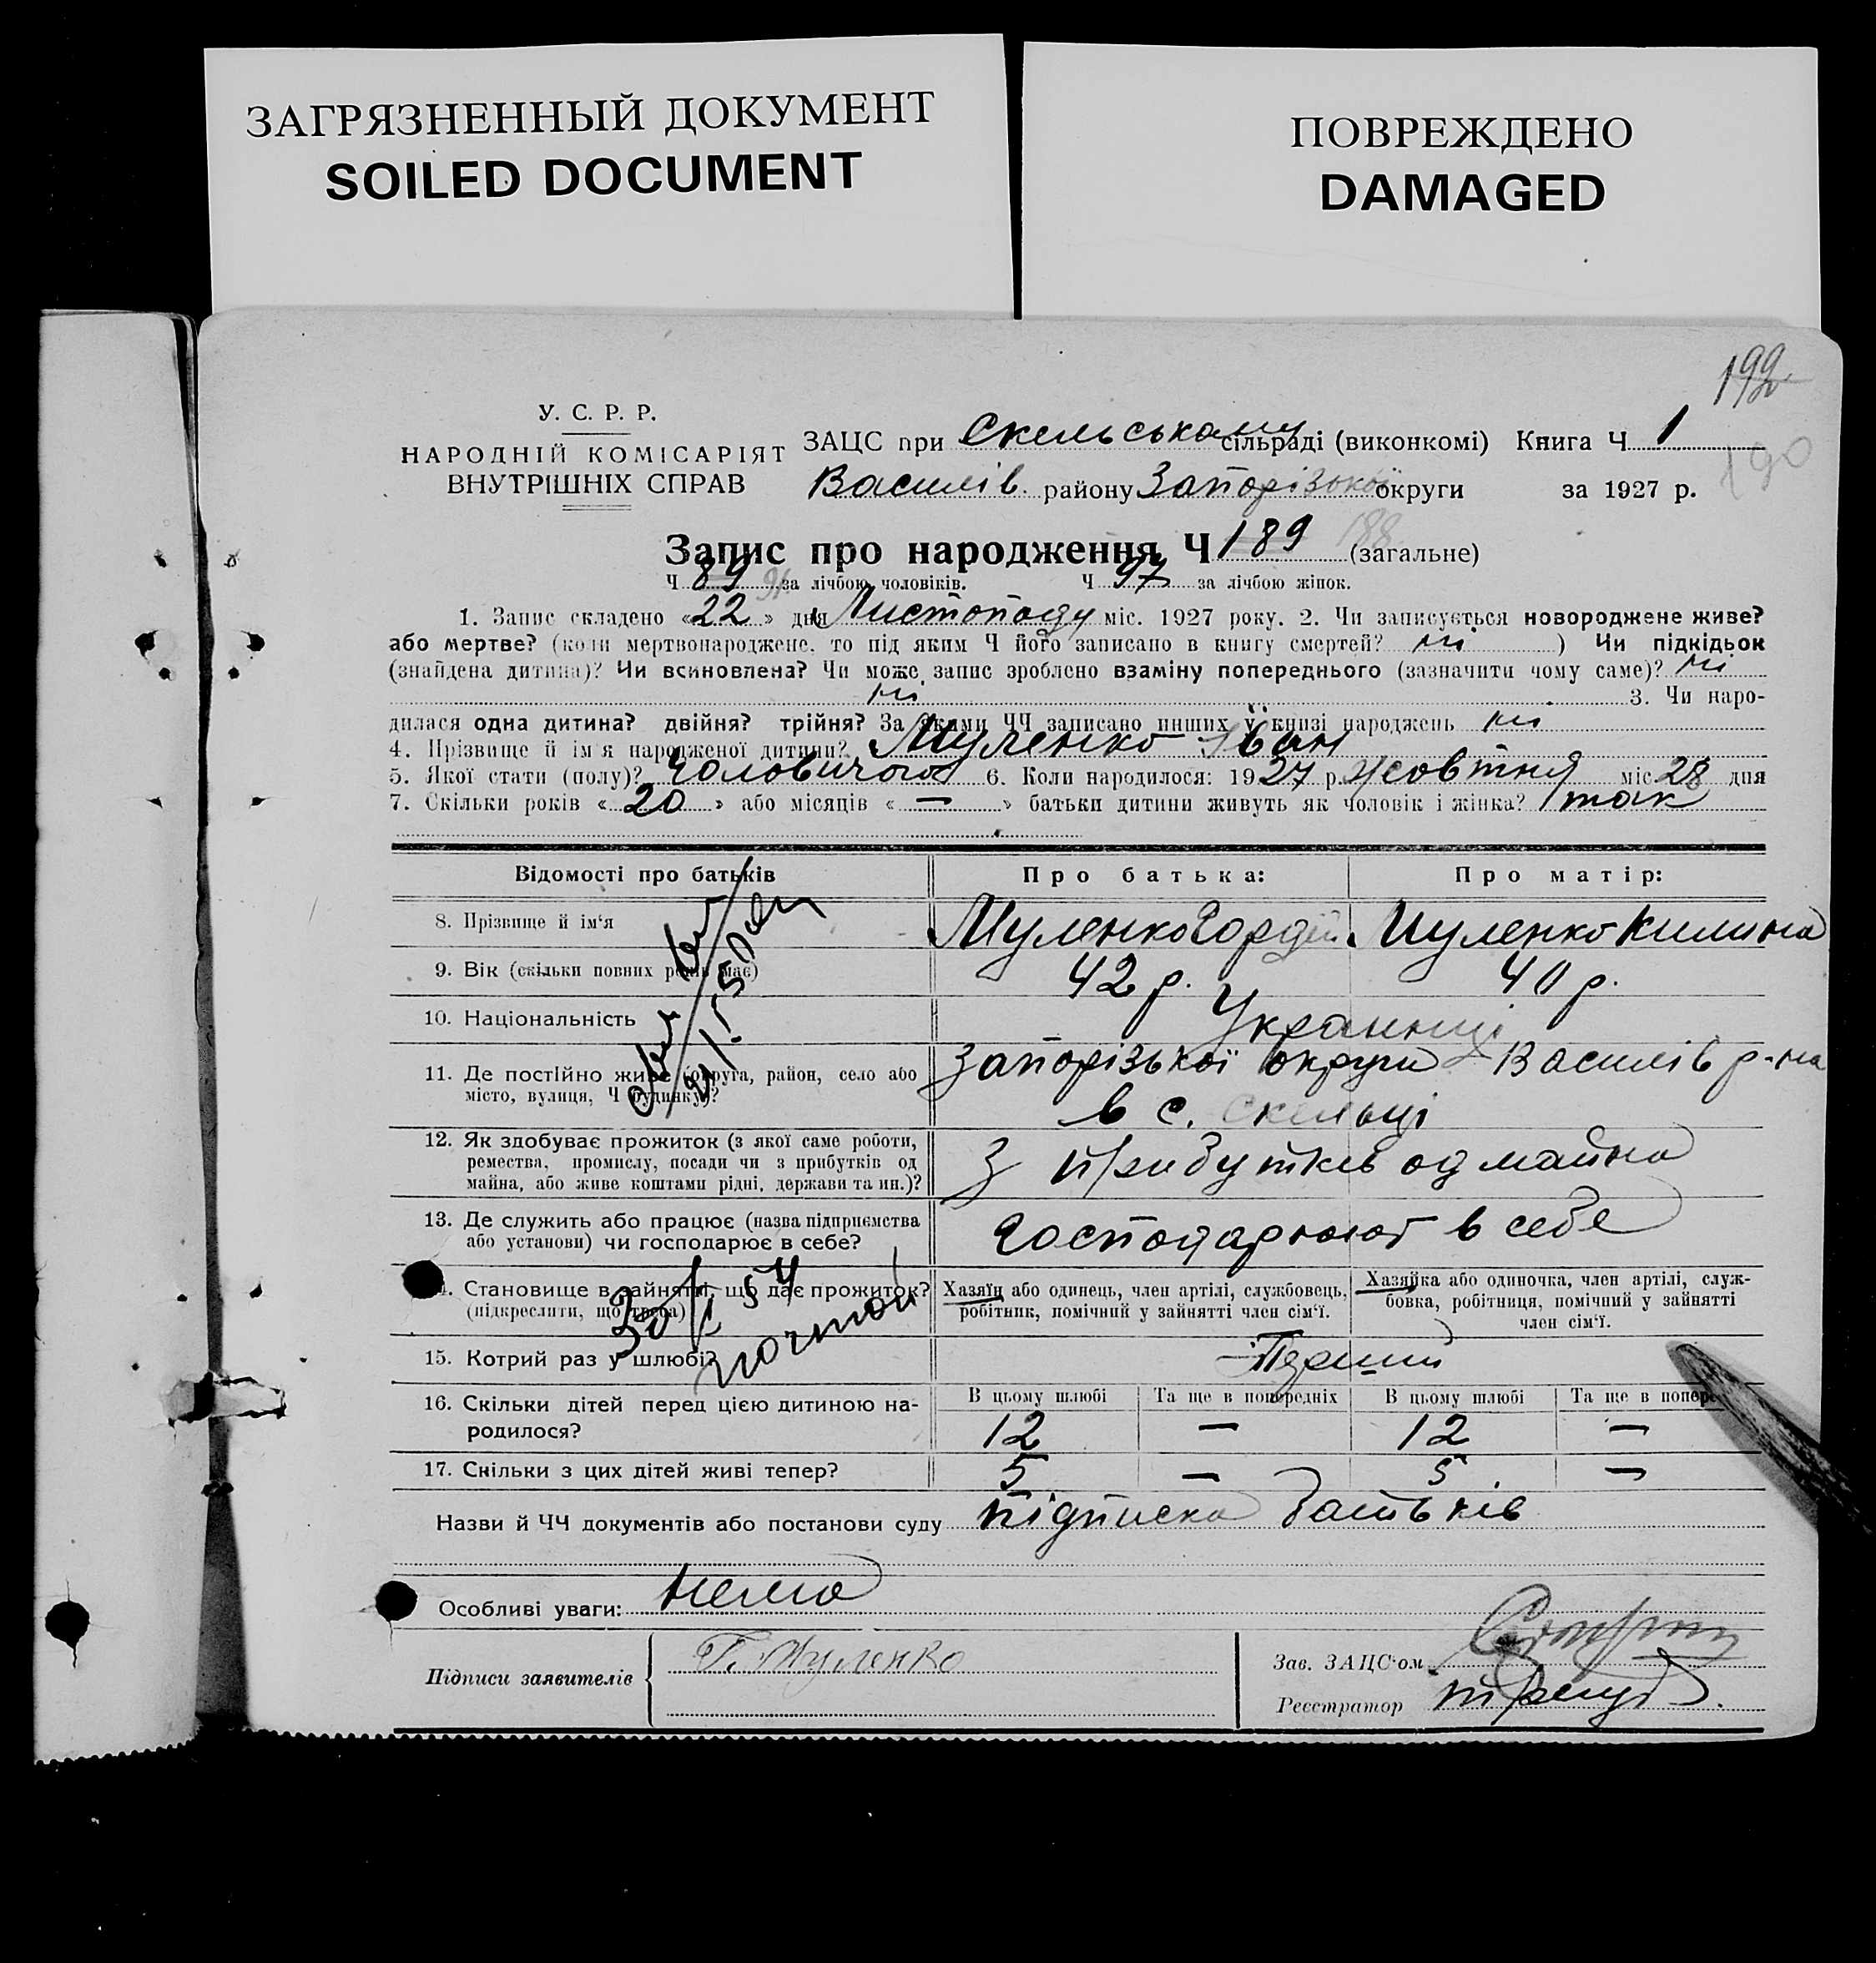 ЗАГРЯЗНЕННЫЙ ДОКУМЕНТ
SOILED DOCUMENT
ПОВРЕЖДЕНО
DAMAGED
199
190
У. С. Р. Р.
НАРОДНІЙ КОМІСАРІЯТ
ВНУТРІШНІХ СПРАВ
ЗАЦС при Скельському сільраді (виконкомі) Книга Ч 1
Василів. району Запорізької округи за 1927 р.
Запис про народження Ч 189 188 (загальне)
Ч 89 91 за лічбою чоловіків. Ч 97 за лічбою жінок.
1. Запис складено «22» дня Листопаду міс. 1927 року. 2. Чи записується новороджене живе?
або мертве? (коли мертвонароджене, то під яким Ч його записано в книгу смертей? ні ) Чи підкідьок
(знайдена дитина)? Чи всиновлена? Чи може запис зроблено взаміну попереднього (зазначити чому саме)? ні
ні 3. Чи наро-
дилася одна дитина? двійня? трійня? За якими ЧЧ записано инших у книзі народжень ні
4. Прізвище й ім'я народженої дитини? Муленко Іван
5. Якої стати (полу)? Чоловичого 6. Коли народилося: 1927 р. жовтня міс 28 дня
7. Скільки років «20» або місяців «—» батьки дитини живуть як чоловік і жінка? так
Відомості про батьків Про батька: Про матір:
8. Прізвище й ім'я Муленко Гордій Муленко Килина
9. Вік (скільки повних років має) 42 р. 40 р.
10. Національність Украинці
11. Де постійно живе (округа, район, село або Запорізької округи Василів р-на
місто, вулиця, Ч будинку)? в с. Скельці
12. Як здобуває прожиток (з якої саме роботи,
ремества, промислу, посади чи з прибутків од З прибутків од майна
майна, або живе коштами рідні, держави та ин.)?
13. Де служить або працює (назва підприємства
або установи) чи господарює в себе? Господарюют в себе
14. Становище в зайнятті, що дає прожиток? Хазяїн або одинець, член артілі, службовець, Хазяйка або одиночка, член артілі, служ-
(підкреслити, що треба) робітник, помічний у зайнятті член сім'ї. бовка, робітниця, помічний у зайнятті
член сім'ї.
15. Котрий раз у шлюбі? Перший
16. Скільки дітей перед цією дитиною на- В цьому шлюбі Та ще в попередніх В цьому шлюбі Та ще в попере
родилося? 12 — 12 —
17. Скільки з цих дітей живі тепер? 5 — 5 —
Назви й ЧЧ документів або постанови суду підписка батьків
Особливі уваги: нема
Підписи заявителів Г. Муленко
Зав. ЗАЦС'ом
Реєстратор